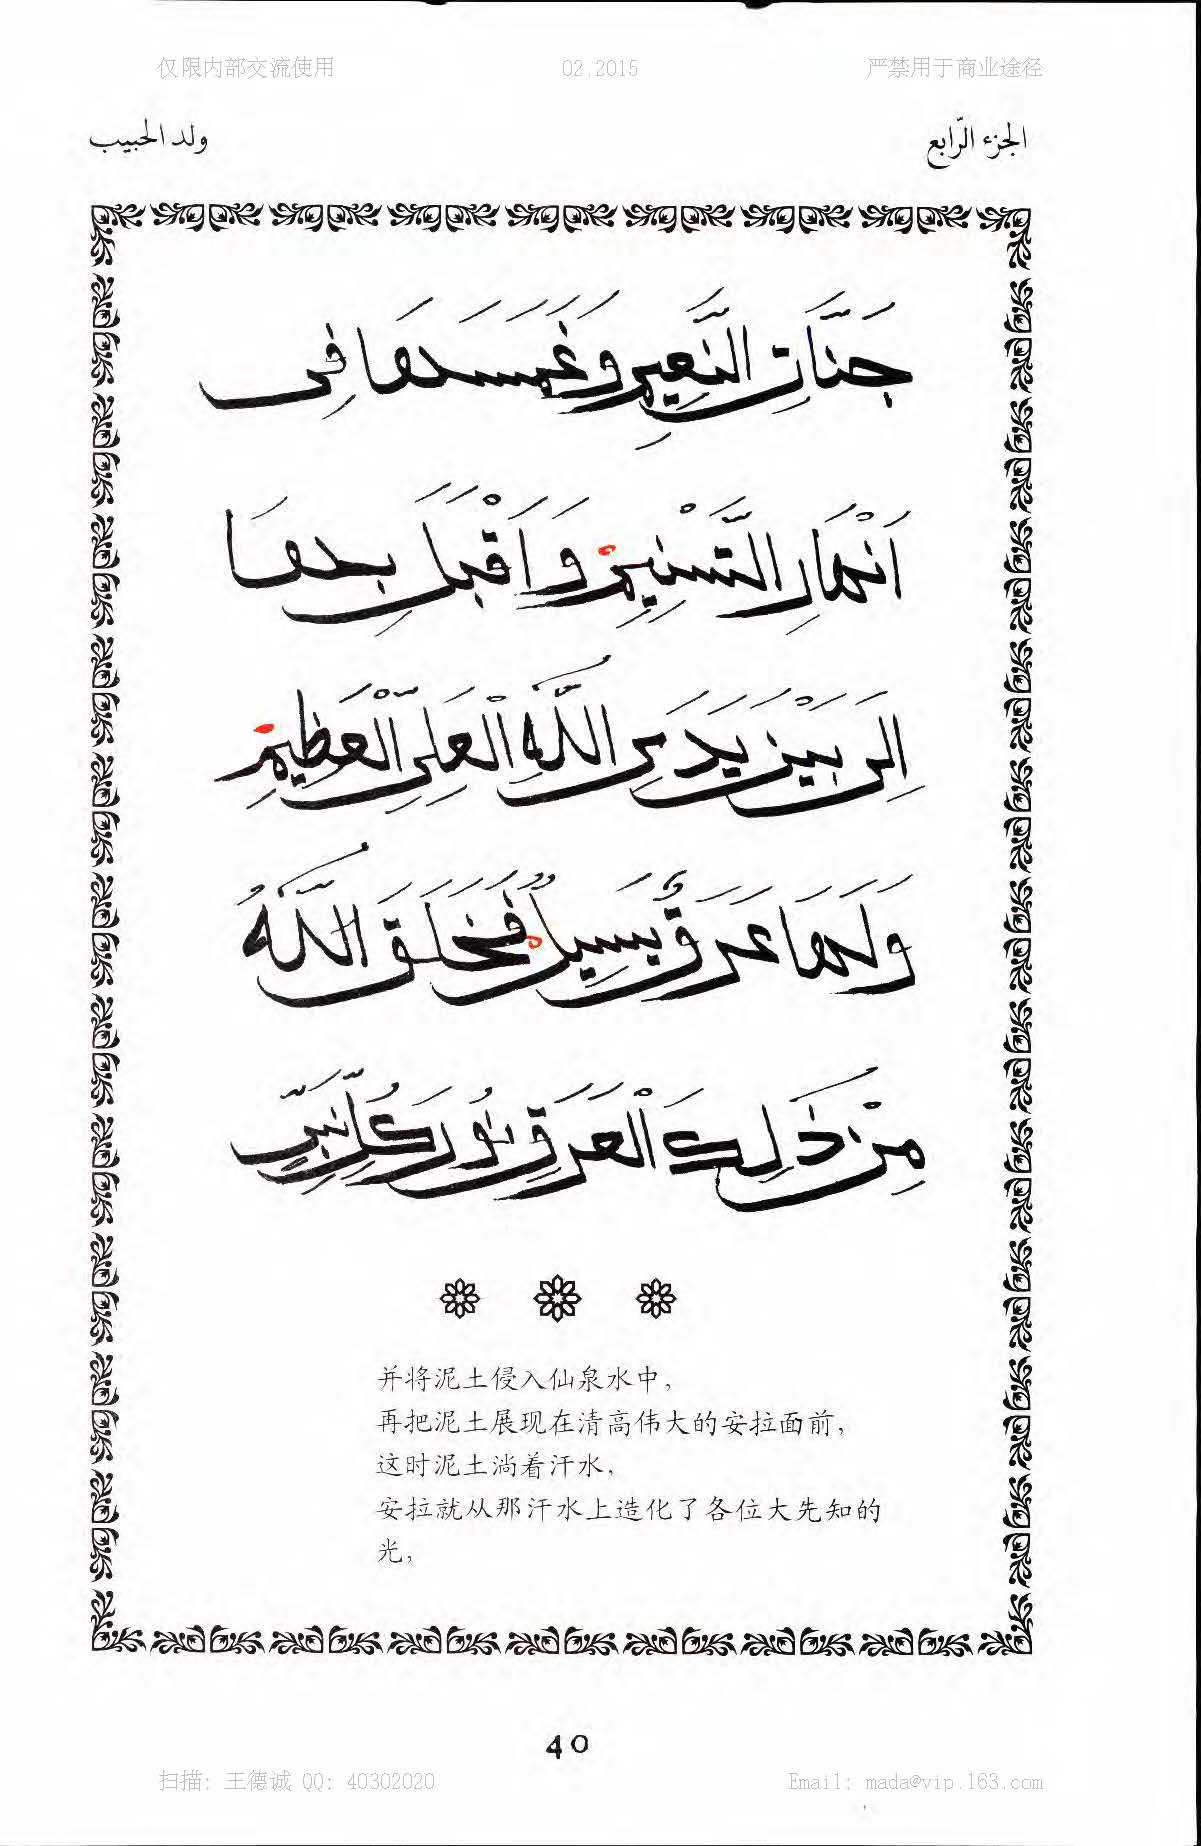 仅限内部交流使用 02.2015 严禁用于商业途径
الجزء الرّابع ولد الحبيب
جَنَّاتِ النَّعِيمِ وَغَمَسَهَا فِي
اَنْهَارِ التَّسْنِيمِ وَاَقْبَلَ بِهَا
اِلَى بَيْنَ يَدَيِ اللَّهِ الْعَلِيِّ الْعَظِيمِ
وَلَهَا عَرَقٌ يَسِيلُ فَخَلَقَ اللَّهُ
مِنْ ذَلِكَ الْعَرَقِ نُورَ كُلِّ نَبِيٍّ
并将泥土侵入仙泉水中，
再把泥土展现在清高伟大的安拉面前，
这时泥土淌着汗水，
安拉就从那汗水上造化了各位大先知的
光，
40
扫描: 王德诚 QQ: 40302020 Email: mada@vip.163.com